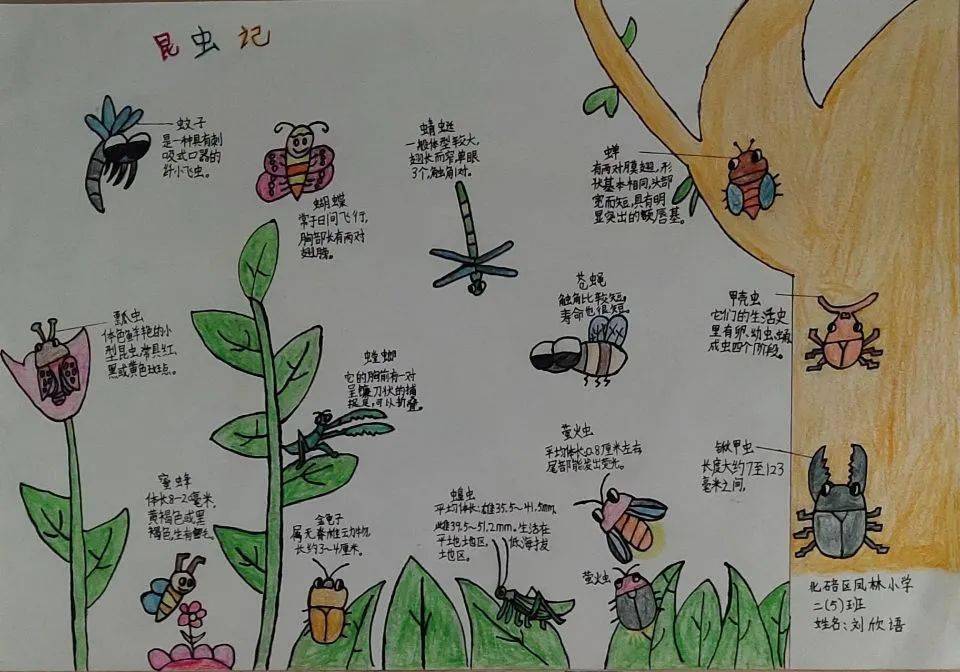 昆虫记
蚊子
是一种具有刺
吸式口器的
纤小飞虫。
蝴蝶
常于日间飞行,
胸部长有两对
翅膀。
蜻蜓
一般体型较大,
翅长而窄,单眼
3个,触角1对。
蝉
有两对膜翅,形
状基本相同,头部
宽而短,具有明
显突出的额唇基。
苍蝇
触角比较短,
寿命也很短。
甲壳虫
它们的生活史
里有卵、幼虫、蛹、
成虫四个阶段。
瓢虫
体色鲜艳的小
型昆虫,常具红、
黑或黄色斑点。
螳螂
它的胸前有一对
呈镰刀状的捕
捉足,可以折叠。
萤火虫
平均体长0.8厘米左右
尾部能发出荧光。
锹甲虫
长度大约7至123
毫米之间,
蜜蜂
体长8-20毫米,
黄褐色或黑
褐色,生有
金龟子
属无脊椎动物
长约3~4厘米。
蝗虫
平均体长:雄35.5~41.5mm,
雌39.5~51.2mm.生活在
平地地区,低海拔
地区。
萤火虫
北碚区凤林小学
二(5)班
姓名:刘欣语